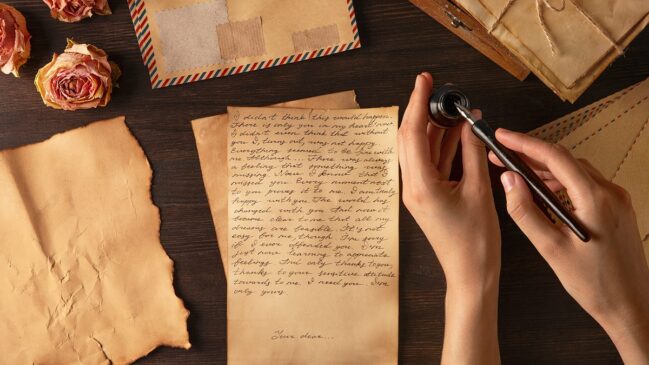 I didn't think, this would happen.
There is only you in my heart now.
I didn't even think that without
you I, turns out, was not happy.
Everything seemed to be fine with
me Although... There was always
a feeling that something was
missing. Now I know that I
missed you. Every moment next
to you proves it to me. I am truly
happy with you. The world has
changed with you. And now it
became clear to me that all my
dreams are feasible. It's not
easy for me, though. I'm sorry
if I ever offended you. I'm
just now learning to appreciate
feelings. And only thanks to you
thanks to your sensitive attitude
towards to me. I need you. I'm
only yours
Your dear...